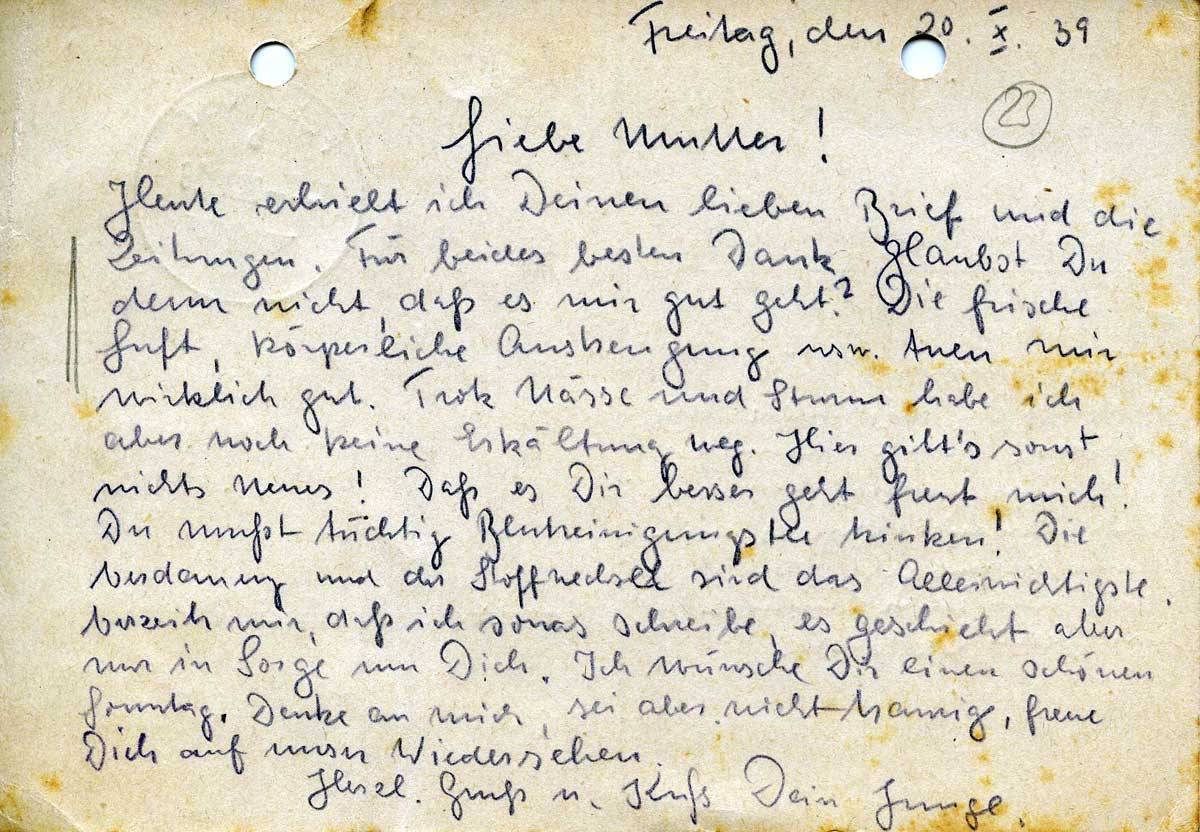 Freitag, den 20. X. 39
23
Liebe Mutter!
Heute erhielt ich Deinen lieben Brief und die
Zeitungen. Für beides besten Dank. Glaubst Du
denn nicht, daß es mir gut geht? Die frische
Luft, körperliche Anstrengung usw. tuen mir
wirklich gut. Trotz Nässe und Sturm habe ich
aber noch keine Erkältung weg. Hier gibt's sonst
nichts Neues! Daß es Dir besser geht freut mich!
Du mußt tüchtig Blutreinigungstee trinken! Die
Verdauung und der Stoffwechsel sind das Allerwichtigste.
Verzeih mir, daß ich sowas schreibe, es geschieht aber
nur in Sorge um Dich. Ich wünsche Dir einen schönen
Sonntag. Denke an mich, sei aber nicht traurig, freue
Dich auf unser Wiedersehen.
Herzl. Gruß u. Kuß Dein Junge.